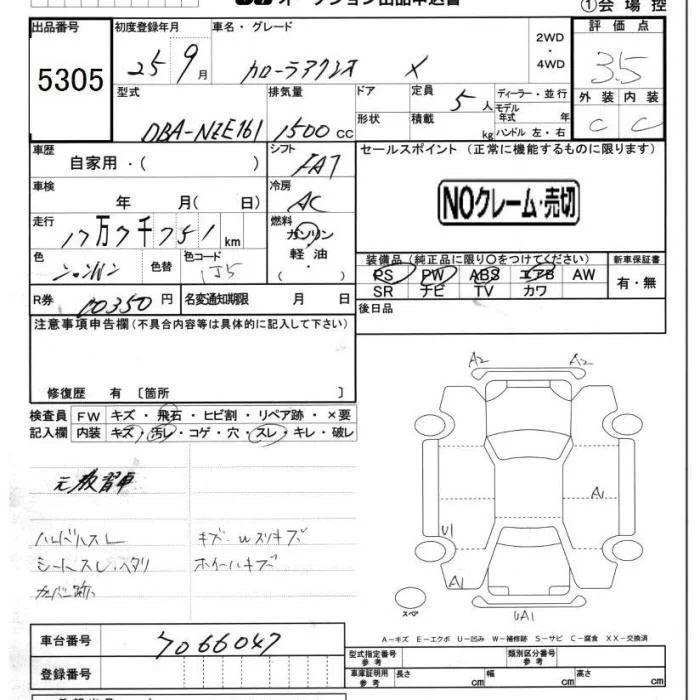 オークション出品申込書
①会場控
出品番号
5305
初度登録年月
25 9月
車名・グレード
カローラアクシオ X
2WD
・
4WD
評価点
3.5
外装 内装
C C
型式
DBA-NZE161
排気量
1500 CC
ドア
形状
定員
5人
積載
kg
ディーラー・並行
モデル年式 年
ハンドル 左・右
車歴
自家用・( )
シフト
FAT
セールスポイント (正常に機能するものに限ります)
NOクレーム・売切
車検
年 月( 日)
冷房
AC
走行
17万7千751km
燃料
ガソリン
軽油
( ・ )
色
シャンパン
色替
色コード
1J5
装備品(純正品に限り〇をつけてください)
PS PW ABS エアB AW
SR ナビ TV カワ
新車保証書
有・無
R券
10350円
名変通知期限 月 日
後日品
注意事項申告欄(不具合内容等は具体的に記入して下さい)
修復歴 有 〔箇所 〕
検査員記入欄
FW キズ・飛石・ヒビ割・リペア跡・×要
内装 キズ・汚レ・コゲ・穴・スレ・キレ・破レ
元教習車
ハンドルスレ
シートスレ、ヘタリ
カバー跡
キズ・wスリキズ
ホイールキズ
A2 A2
A1
U1
A1
UA1
スペア
A-キズ E-エクボ U-凹み W-補修跡 S-サビ C-腐食 XX-交換済
車台番号
7066047
登録番号
型式指定番号
参考
類別区分番号
参考
車庫証明用
参考
長さ cm
幅 cm
高さ cm